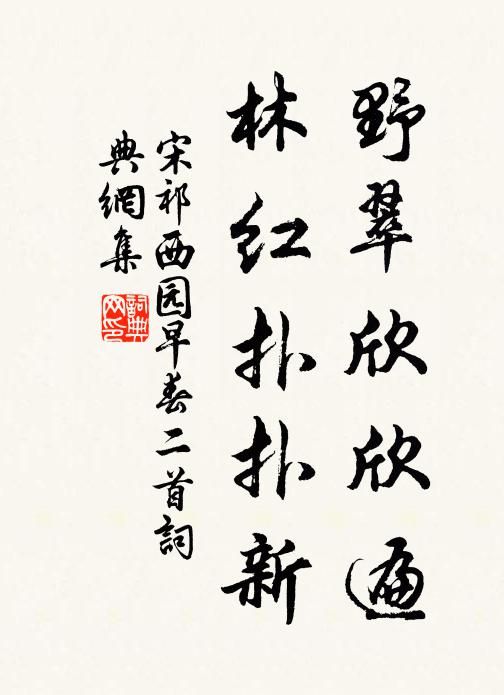 野翠欣欣遍
林红扑扑新
宋祁西园早春二首詞
典網集
詞典网印